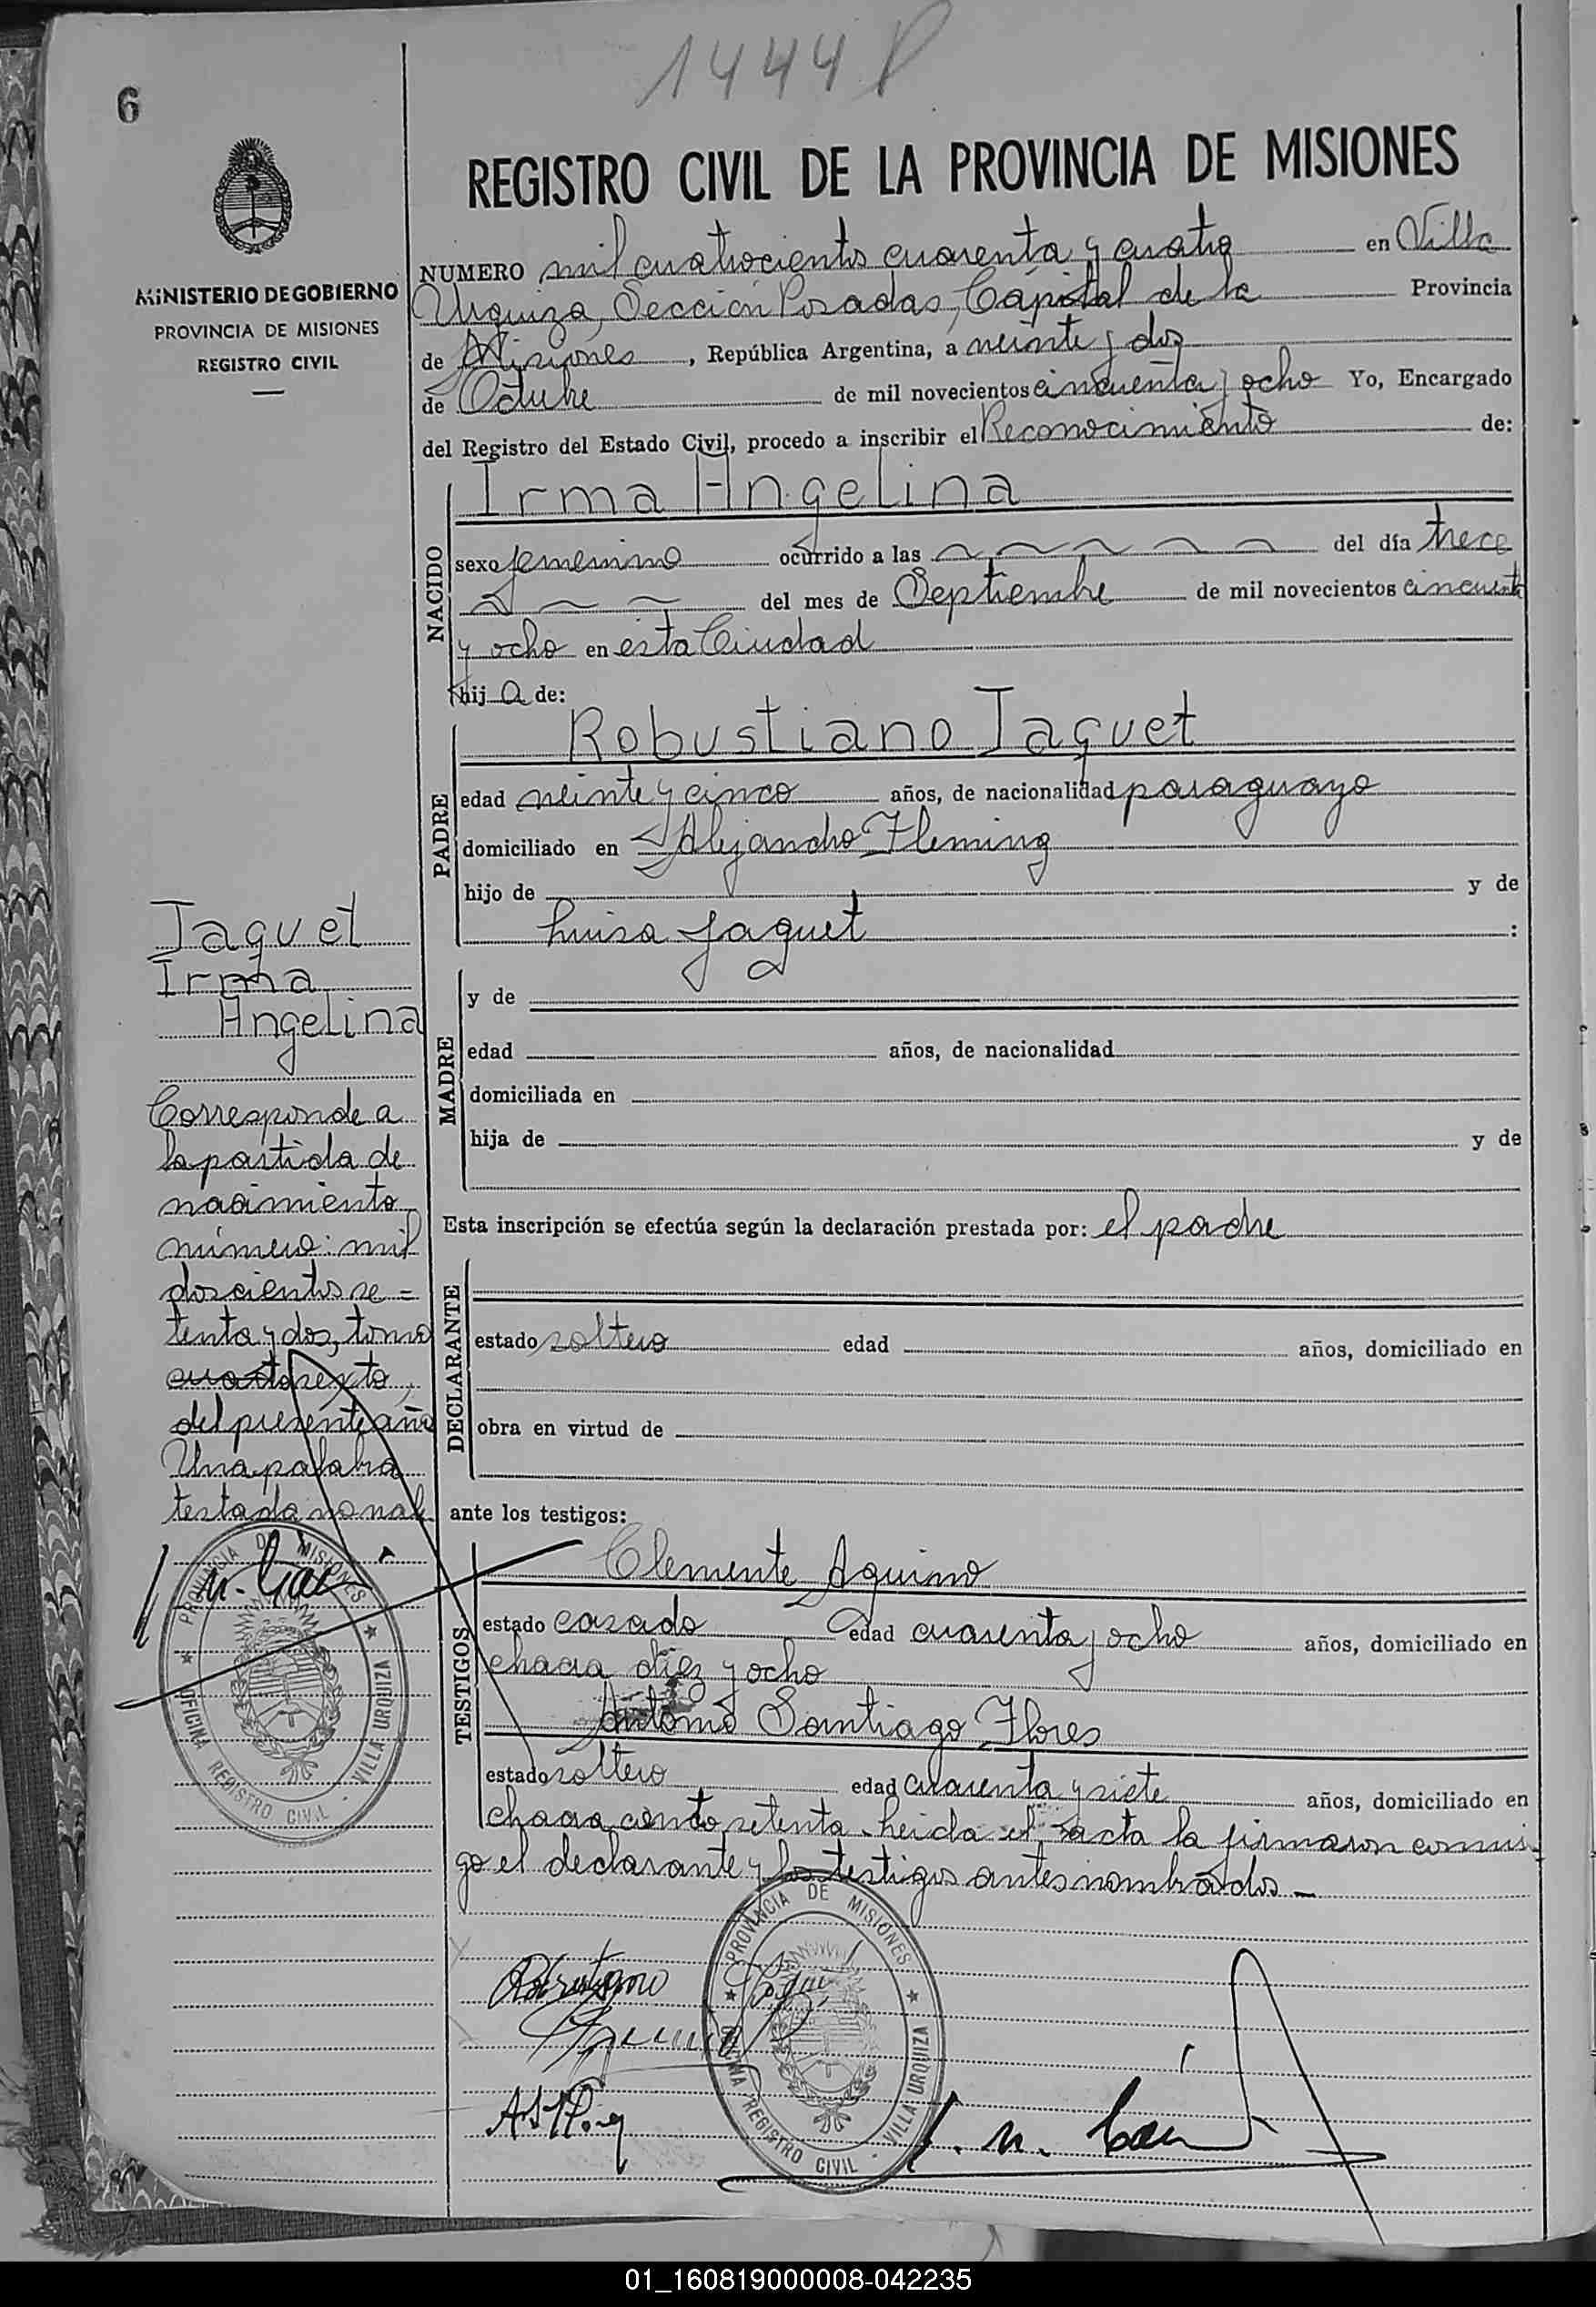 1444
6
REGISTRO CIVIL DE LA PROVINCIA DE MISIONES
MINISTERIO DE GOBIERNO
PROVINCIA DE MISIONES
REGISTRO CIVIL
NUMERO mil cuatrocientos cuarenta y cuatro en Villa
Urquiza, Sección Posadas, Capital de la Provincia
de Misiones, República Argentina, a veinte y dos
de Octubre de mil novecientos cincuenta y ocho Yo, Encargado
del Registro del Estado Civil, procedo a inscribir el Reconocimiento de:
NACIDO
Irma Angelina
sexo femenino ocurrido a las del día trece
del mes de Septiembre de mil novecientos cincuenta
y ocho en esta Ciudad
hija de:
PADRE
Robustiano Jaquet
edad veinte y cinco años, de nacionalidad paraguayo
domiciliado en Alejandro Fleming
hijo de y de
Luisa Jaquet :
MADRE
y de
edad años, de nacionalidad
domiciliada en
hija de y de
Esta inscripción se efectúa según la declaración prestada por: el padre
DECLARANTE
estado soltero edad años, domiciliado en
obra en virtud de
ante los testigos:
TESTIGOS
Clemente Aquino
estado casado edad cuarenta y ocho años, domiciliado en
chacra diez y ocho
Antonio Santiago Flores
estado soltero edad cuarenta y siete años, domiciliado en
chacra ciento setenta - leída el acta la firmaron conmi-
go el declarante y los testigos antes nombrados -
Jaquet
Irma
Angelina
Corresponde a
la partida de
nacimiento
número: mil
doscientos se=
tenta y dos, tomo
cuarto sexto,
del presente año
Una palabra
testada no vale
PROVINCIA DE MISIONES
OFICINA REGISTRO CIVIL - VILLA URQUIZA
PROVINCIA DE MISIONES
OFICINA REGISTRO CIVIL - VILLA URQUIZA
Robustiano
01_160819000008-042235